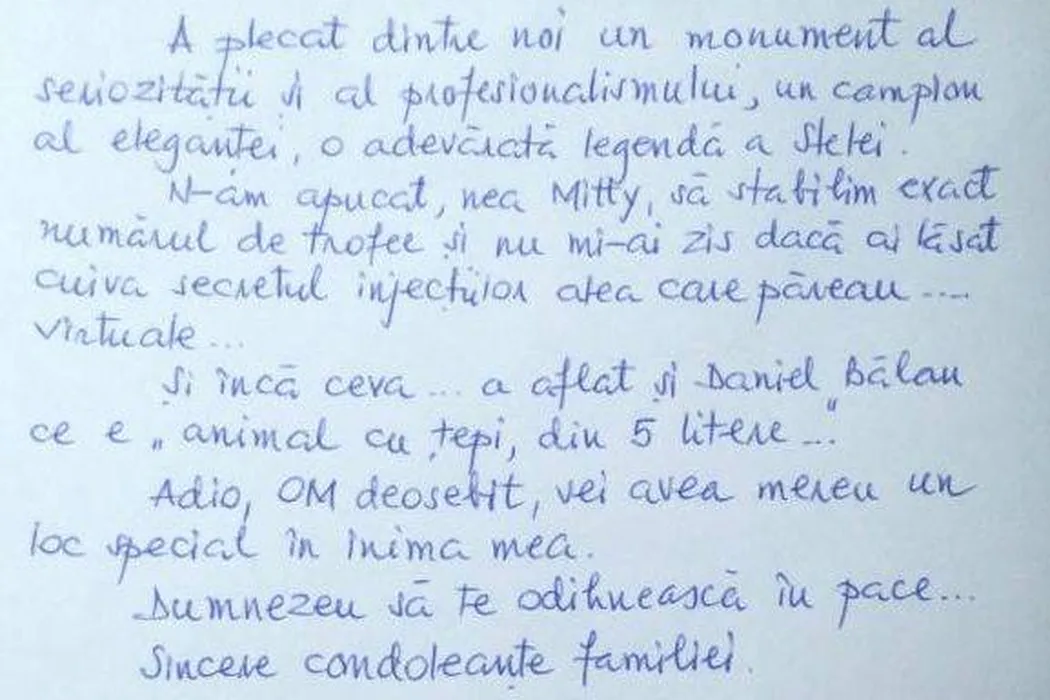 A plecat dintre noi un monument al
seriozității și al profesionalismului, un campion
al eleganței, o adevărată legendă a Stelei.
N-am apucat, nea Mitty, să stabilim exact
numărul de trofee și nu mi-ai zis dacă ai lăsat
cuiva secretul injecțiilor alea care păreau ....
virtuale...
Și încă ceva... a aflat și Daniel Bălan
ce e „animal cu țepi, din 5 litere..."
Adio, OM deosebit, vei avea mereu un
loc special în inima mea.
Dumnezeu să te odihnească în pace...
Sincere condoleanțe familiei.